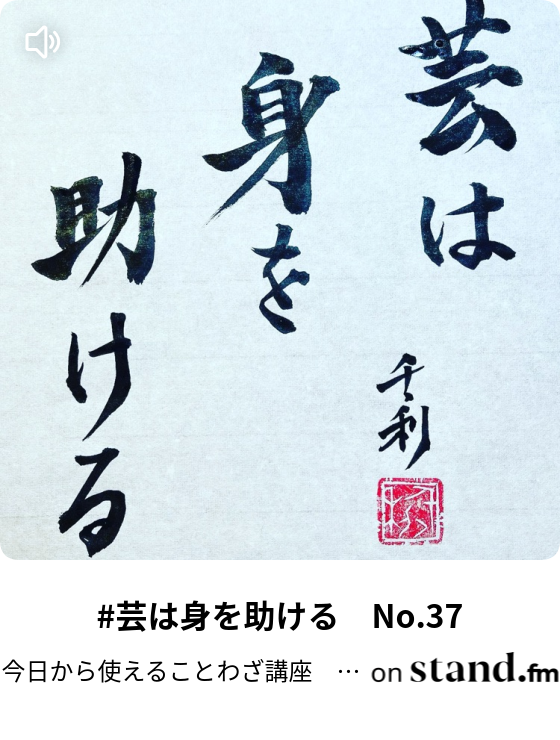 芸は
身を
助ける
千利
#芸は身を助ける　No.37
今日から使えることわざ講座　… on stand.fm